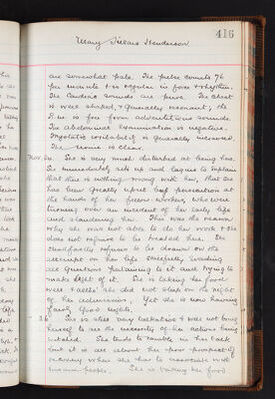 416
Mary Dickers Henderson
are somewhat pale. The pulse counts 76
per minute & is regular in force & rhythm.
The Cardiac sounds are pure. The chest
is well shaped, & generally resonant, the
R.M. is free from adventitious sounds.
The abdominal examination is negative.
is generally increased.
The urine is clear.
Nov. She is very much disturbed at being here.
She immediately sets up and begins to explain
that there is nothing wrong with her, that she
has been greatly upset by persecution at
the hands of her fellow workers, who were
throwing over an incident of her early life
and slandering her. This was the reason
why she was not able to do her work & she
does not refuse to be treated here. She
steadfastly refuses to be drawn on the
attempt on her life carefully evading
all questions pertaining to it and trying to
make light of it. She is taking her food
well & altho' she did not sleep on the night
of her admission. Yet she is now having
fairly good nights.
26. She is still very talkative & will not bring
herself to see the necessity of her actions being
watched. She tends to ramble in her talk
but it is all about her poor prospects of
recovery when she has to associate with
people. She is taking her food